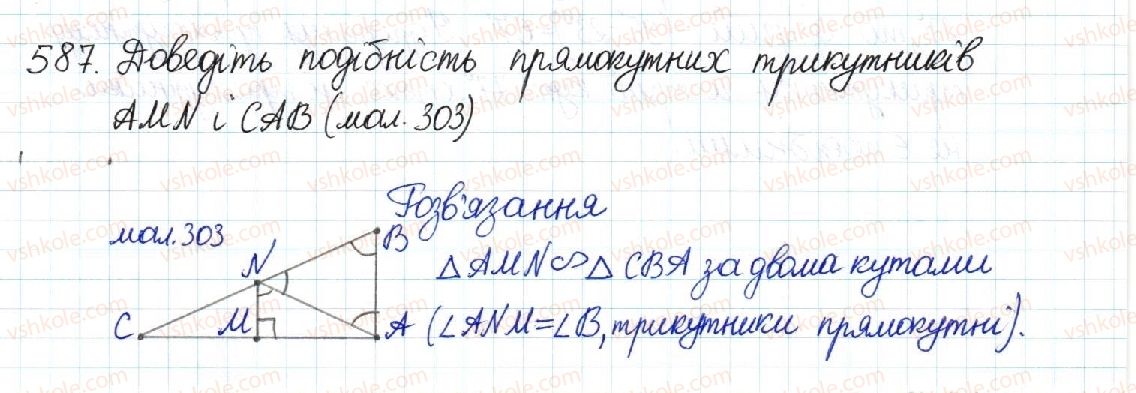 587. Доведіть подібність прямокутних трикутників
AMN і CAB (мал. 303)
Розв'язання
мал. 303
B
N
△AMN∽△CBA за двома кутами
C
M
A
(∠ANM=∠B, трикутники прямокутні).
vshkole.com